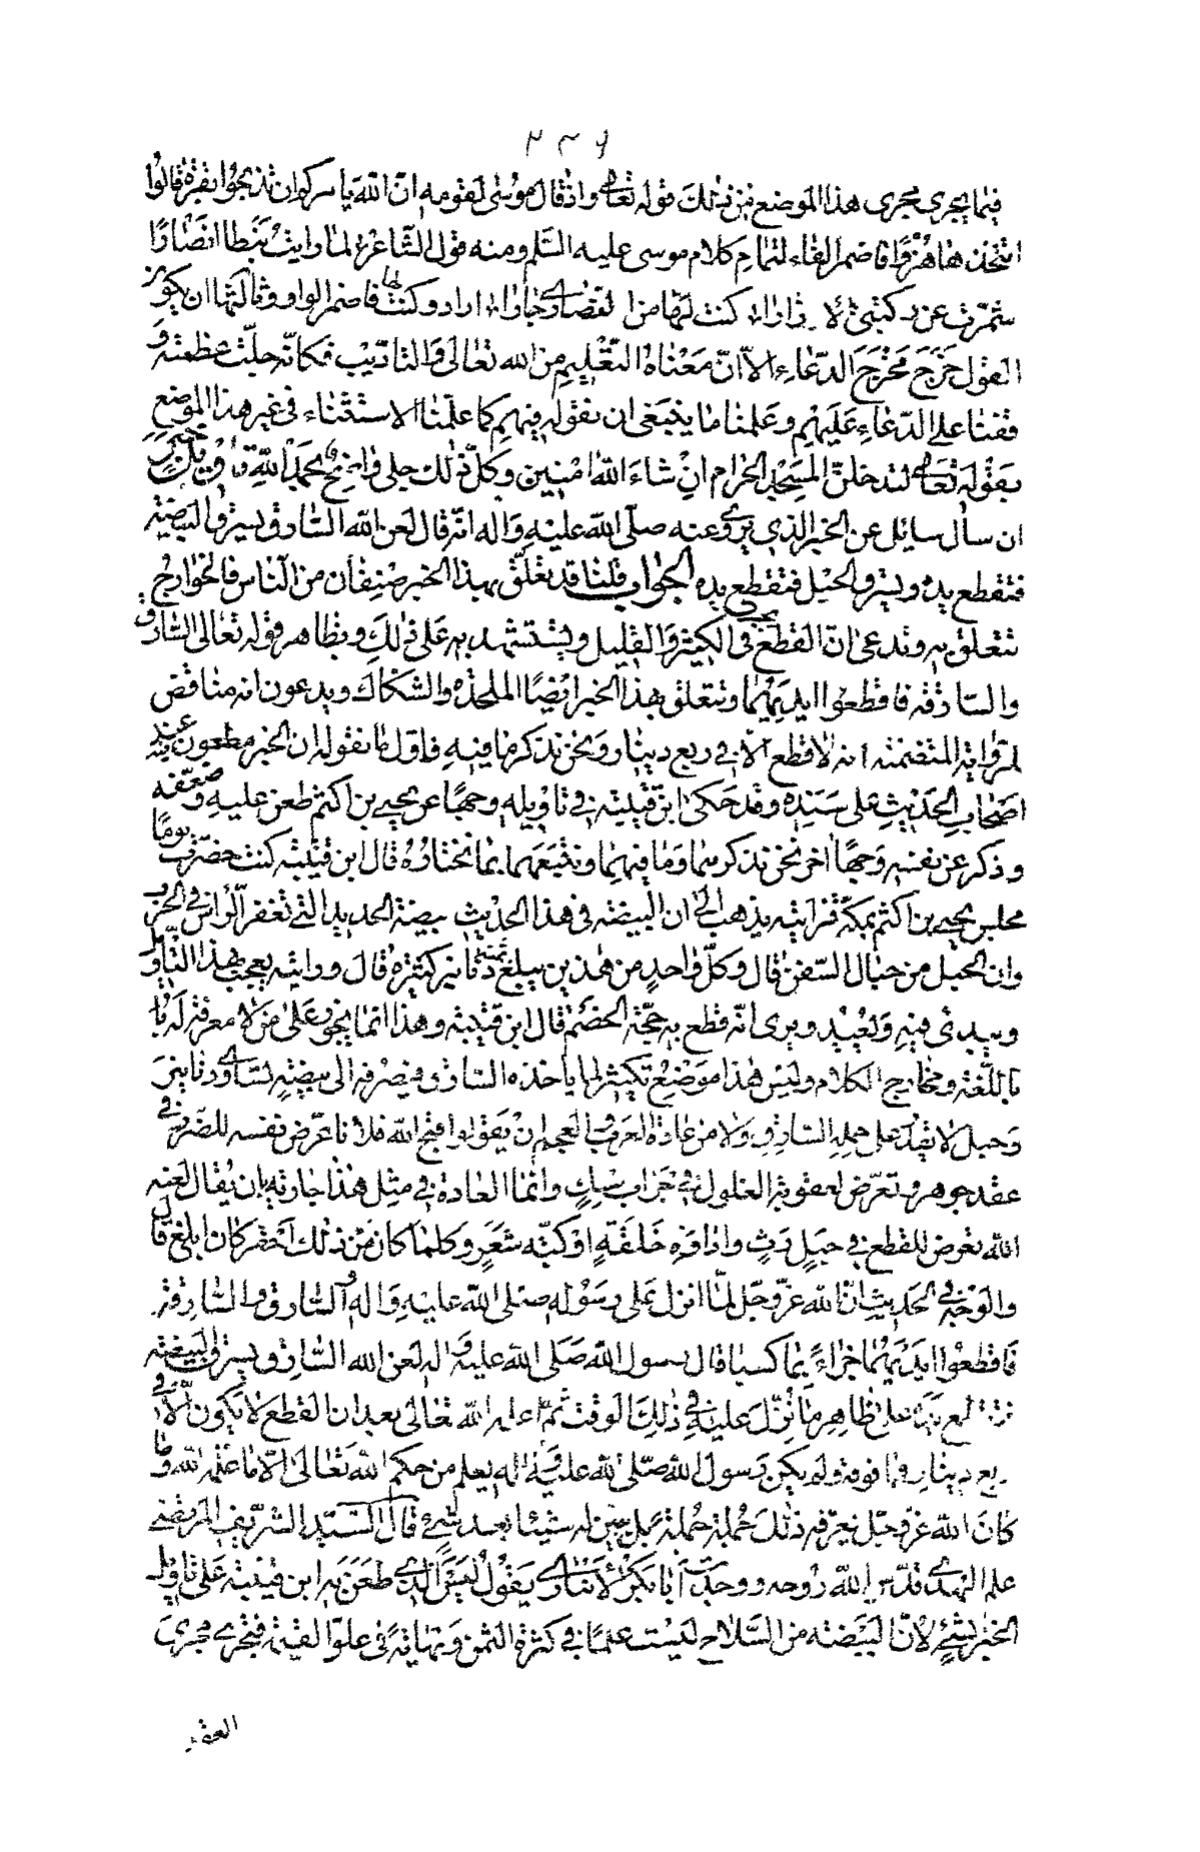 ٢٣٦
فيما يجرى مجرى هذا الموضع فمن ذلك قوله تعالى واذ قال موسى لقومه ان الله يامركم ان تذبحوا بقرة قالوا
اتتخذنا هزوا فاضمر الفاء لتمام كلام موسى عليه السلم ومنه قول الشاعر لما رايت نبطا انصارا
شمرت عن ركبتى الازارا كنت لها من النصارى جارا اراد وكنت لها فاضمر الواو وثالثها ان يكون
القول خرج مخرج الدعاء الا ان معناه التعليم من الله تعالى والتاديب فكانه جلت عظمته و
قفنا على الدعاء عليهم وعلمنا ما ينبغى ان نقوله فيهم كما علمنا الاستثناء فى غير هذا الموضع
بقوله تعالى لتدخلن المسجد الحرام ان شاء الله امنين وكل ذلك جلى واضح بحمد الله تاويل خبر
ان سال سايل عن الخبر الذي يروى عنه صلى الله عليه واله انه قال لعن الله السارق يسرق البيضة
فتقطع يده ويسرق الحبل فتقطع يده الجواب قلنا قد تعلق بهذا الخبر صنفان من الناس فالخوارج
تتعلق به وتدعى ان القطع يجب فى الكثير والقليل ويستشهد به على ذلك وبظاهر قوله تعالى السارق
والسارقة فاقطعوا ايديهما وتتعلق بهذا الخبر ايضا الملحدة والشكاك ويدعون انه مناقض
للرواية المتضمنة انه لا قطع الا فى ربع دينار ونحن نذكر ما فيه فاول ما نقوله ان الخبر مطعون عند
اصحاب الحديث على سنده وقد حكى ابن قتيبة فى تاويله وجها عن يحيى بن اكثم طعن عليه وضعفه
وذكر عن نفسه وجها اخر نحن نذكرهما وما فيهما ونتبعهما بما نختاره قال ابن قتيبة كنت حضرت يوما
مجلس يحيى بن اكثم بمكة فرايته يذهب الى ان البيضة فى هذا الحديث بيضة الحديد التى تغفر الراس فى الحرب
وان الحبل من حبال السفن قال وكل واحد من هذين يبلغ ثمنه دنانير كثيرة قال ورايته يعجب بهذا التاويل
ويبدئ فيه ويعيد ويرى انه قطع به حجة الخصم قال ابن قتيبة وهذا انما يجوز على من لا معرفة له
باللغة ومخارج الكلام وليس هذا موضع تكثير لما ياخذه السارق فيصرفه الى بيضة تساوى دنانير
وحبل لا يقدر على حمله السارق ولا من عادة العرب والعجم ان يقولوا قبح الله فلانا عرض نفسه للضرب فى
عقد جوهر وتعرض لعقوبة الغلول فى جراب مسك وانما العادة فى مثل هذا جارية بان يقال لعنه
الله تعرض للقطع فى حبل رث واداوة خلقة او كبة شعر وكلما كان من ذلك احقر كان ابلغ قال
والوجه فى الحديث ان الله عز وجل لما انزل على رسوله صلى الله عليه واله والسارق والسارقة
فاقطعوا ايديهما جزاء بما كسبا قال رسول الله صلى الله عليه واله لعن الله السارق يسرق البيضة
فتقطع يده على ظاهر ما نزل عليه فى ذلك الوقت ثم اعلمه الله تعالى بعد ان القطع لا يكون الا فى
ربع دينار فما فوقه ولم يكن رسول الله صلى الله عليه واله يعلم من حكم الله تعالى الا ما علمه الله وما
كان الله عز وجل يعرفه ذلك جملة جملة بل يبين له شيئا بعد شئ قال السيد الشريف المرتضى
علم الهدى قدس الله روحه ووجدت ابا بكر الانبارى يقول ليس الذى طعن به ابن قتيبة على تاويل
الخبر بشئ لان البيضة من السلاح ليست علما فى كثرة الثمن ونهاية فى علو القيمة فتجرى مجرى
العقد